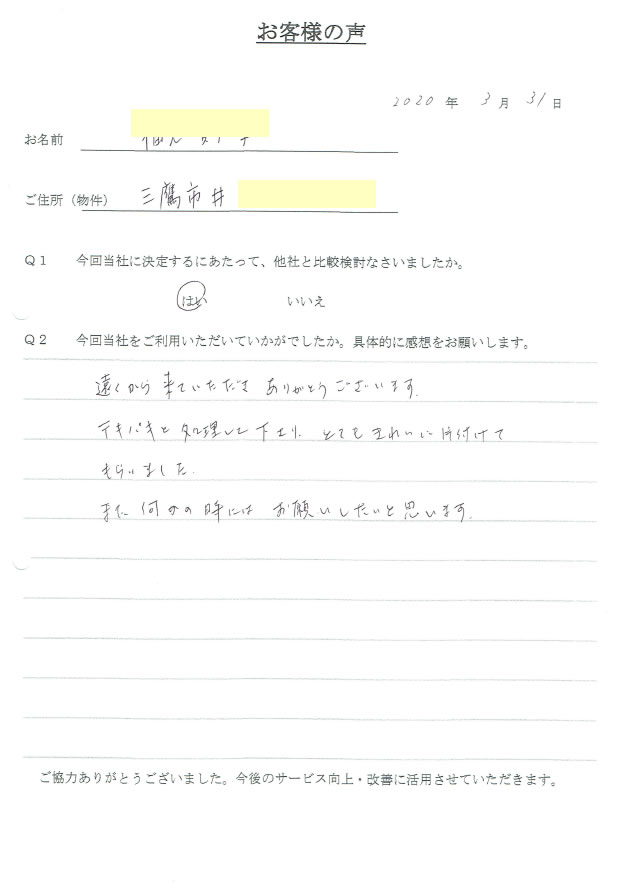 お客様の声
2020 年 3 月 31 日
お名前
ご住所（物件） 三鷹市井
Q1 今回当社に決定するにあたって、他社と比較検討なさいましたか。
はい いいえ
Q2 今回当社をご利用いただいていかがでしたか。具体的に感想をお願いします。
遠くから来ていただき ありがとうございます。
テキパキと処理して下さり、とてもきれいに片付けて
もらいました。
また何かの時には お願いしたいと思います。
ご協力ありがとうございました。今後のサービス向上・改善に活用させていただきます。